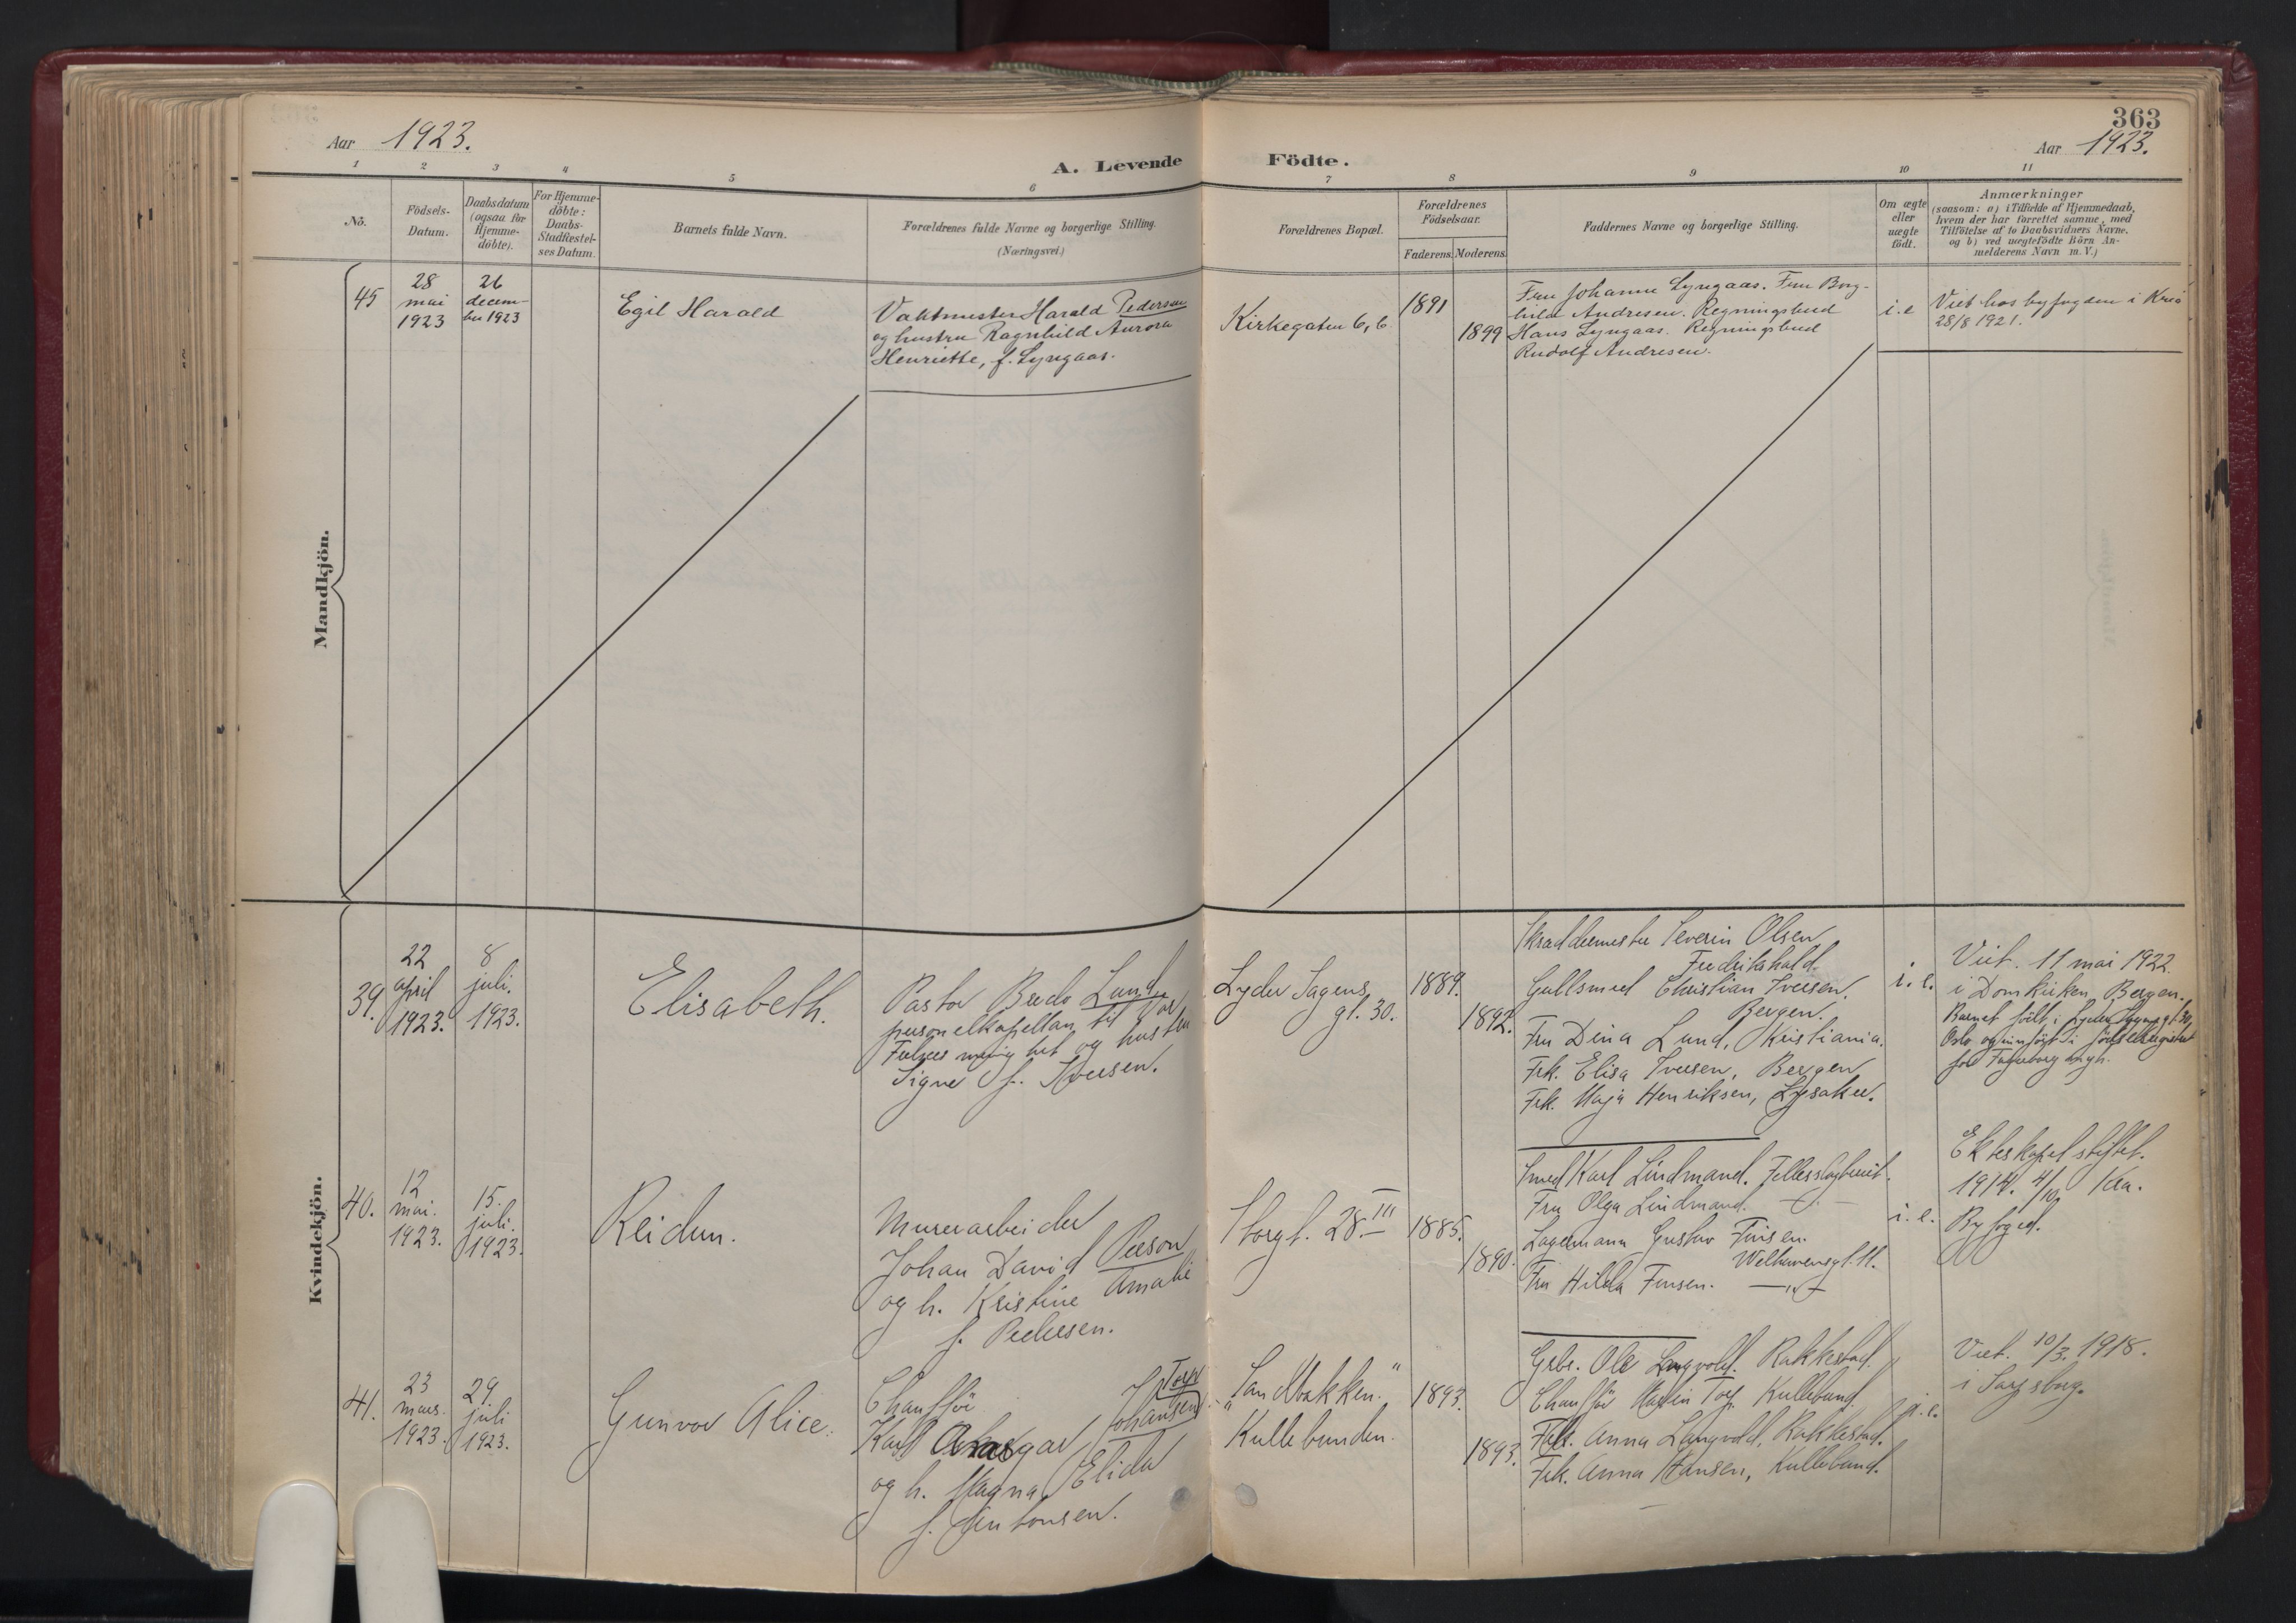 363
Aar 1923.
A. Levende Födte.
Aar 1923.
1 2 3 4 5 6 7 8 9 10 11
Nö.
Födsels-
Datum.
Daabsdatum
(ogsaa for
Hjemme-
döbte).
For Hjemme-
döbte:
Daabs-
Stadfæstel-
ses Datum.
Barnets fulde Navn.
Forældrenes fulde Navne og borgerlige Stilling.
(Næringsvei.)
Forældrenes Bopæl.
Forældrenes
Födselsaar.
Faderens. Moderens.
Faddernes Navne og borgerlige Stilling.
Om ægte
eller
uægte
födt.
Anmærkninger
(saasom: a) i Tilfælde af Hjemmedaab,
hvem der har forrettet samme, med
Tilföielse af to Daabsvidners Navne,
og b) ved uægtefödte Börn An-
melderens Navn m. V.)
Mandkjön.
45
28
mai
1923
26
decem-
ber 1923
Egil Harald
Vaktmester Harald Pedersen
og hustru Ragnhild Aurora
Henriette, f. Lyngaas.
Kirkegaten 6, b
1891
1899
Fru Johanne Lyngaas. Fru Borg-
hild Andresen. Regningsbud
Hans Lyngaas. Regningsbud
Rudolf Andresen.
i. e
Viet hos byfogden i Kria
28/8 1921.
Kvindekjön.
39.
22
april
1923.
8
juli.
1923.
Elisabeth.
Pastor Bredo Lund,
personelkapellan til Vor
Frelsers menighet og hustru
Signe f. Iversen.
Lyder Sagens
gt. 30.
1889.
1892.
Skræddermester Severin Olsen,
Fredrikshald.
Gullsmed Christian Iversen,
Bergen.
Fru Dina Lund, Kristiania.
Frk. Elisa Iversen, Bergen
Frk. Maja Henriksen, Lysaker.
i. e.
Viet. 11 mai 1922.
i Domkirken, Bergen.
Barnet født i Lyder Sagens gt. 30,
Oslo og innført i fødselsregistret
for Fagerborg mgh.
40.
12
mai.
1923.
15.
juli.
1923.
Reidun.
Murerarbeider
Johan David Peerson
og h. Kristine Amalie
f. Pedersen.
Storgt. 28 III
1885.
1890.
Smed Karl Lindmand.
Fru Olga Lindmand. —
Lagermann Gustav Finsen.
Welhavensgt. 11.
Fru Hilda Finsen. — " —
i. e.
Ekteskapet stiftet.
1914. 4/10. Kra.
Byfoged.
41.
23
mars.
1923.
29.
juli
1923.
Gunvor Alice.
Chaufför
Karl Ansgar Johansen Torp
og h. Magna Elida
f. Antonsen.
"Sandbakken"
Kullebunden.
1893.
1893.
Grbr. Ole Langvold. Rakkestad.
Chauffør Martin Torp. Kullebund.
Frk. Anna Langvold, Rakkestad.
Frk. Anna Hansen, Kullebund.
i. e.
Viet. 10/3. 1918.
i Sarpsborg.